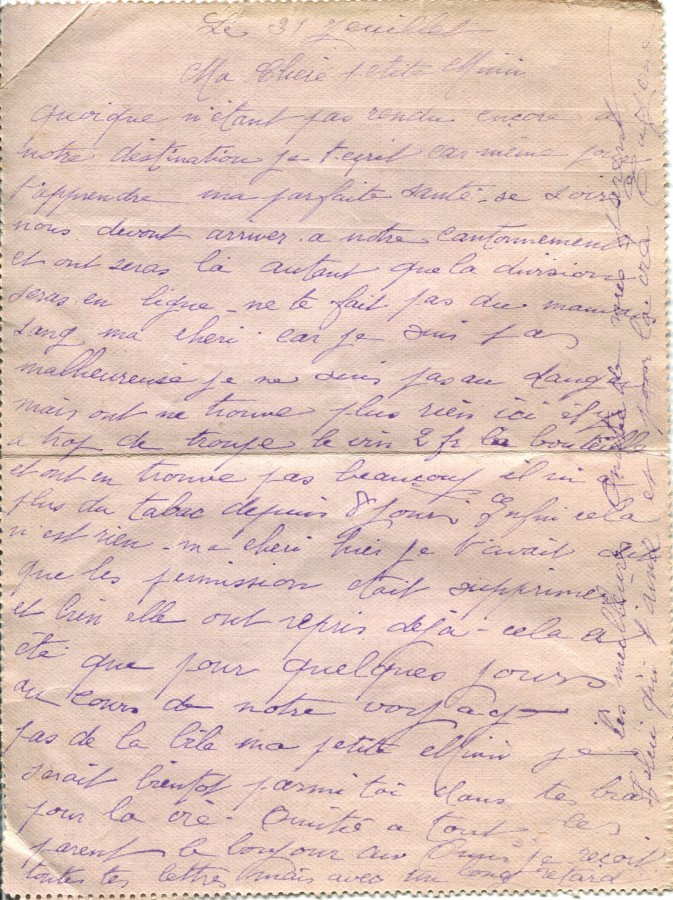 Le 31 Jeuillet
Ma Cheré petite Mimi
quoique n'étant pas rendu encore a
notre déstination je t'ecrit car même pour
t'apprendre ma parfaite santé - se soire
nous devont arriver a notre cantonnement
et ont seras là autant que la division
seras en ligne - ne te fait pas du mauvais
sang ma cheri car je suis pas
malheureuse je ne suis pas au danger
mais ont ne trouve plus rien ici il y
a trop de troupe le vin 2 fr la bouteille
et ont en trouve pas beaucoup il ni a
plus du tabac depuis 8 jours Enfin cela
n'est rien - ma cheri hier je t'avait dit
que les permission etait supprimer
et bien elle ont repris déjà - cela a
été que pour quelques jours
au cours de notre voyage
pas de la bile ma petite Mimi je
serait bientot parmi toi dans tes bras
pour la vie - Amitié a tout les
parent le bonjour au Amis je recoit
toutes tes lettres mais avec un long retard
les meilleures de
celui qui t'aime et pour la vie Eugène